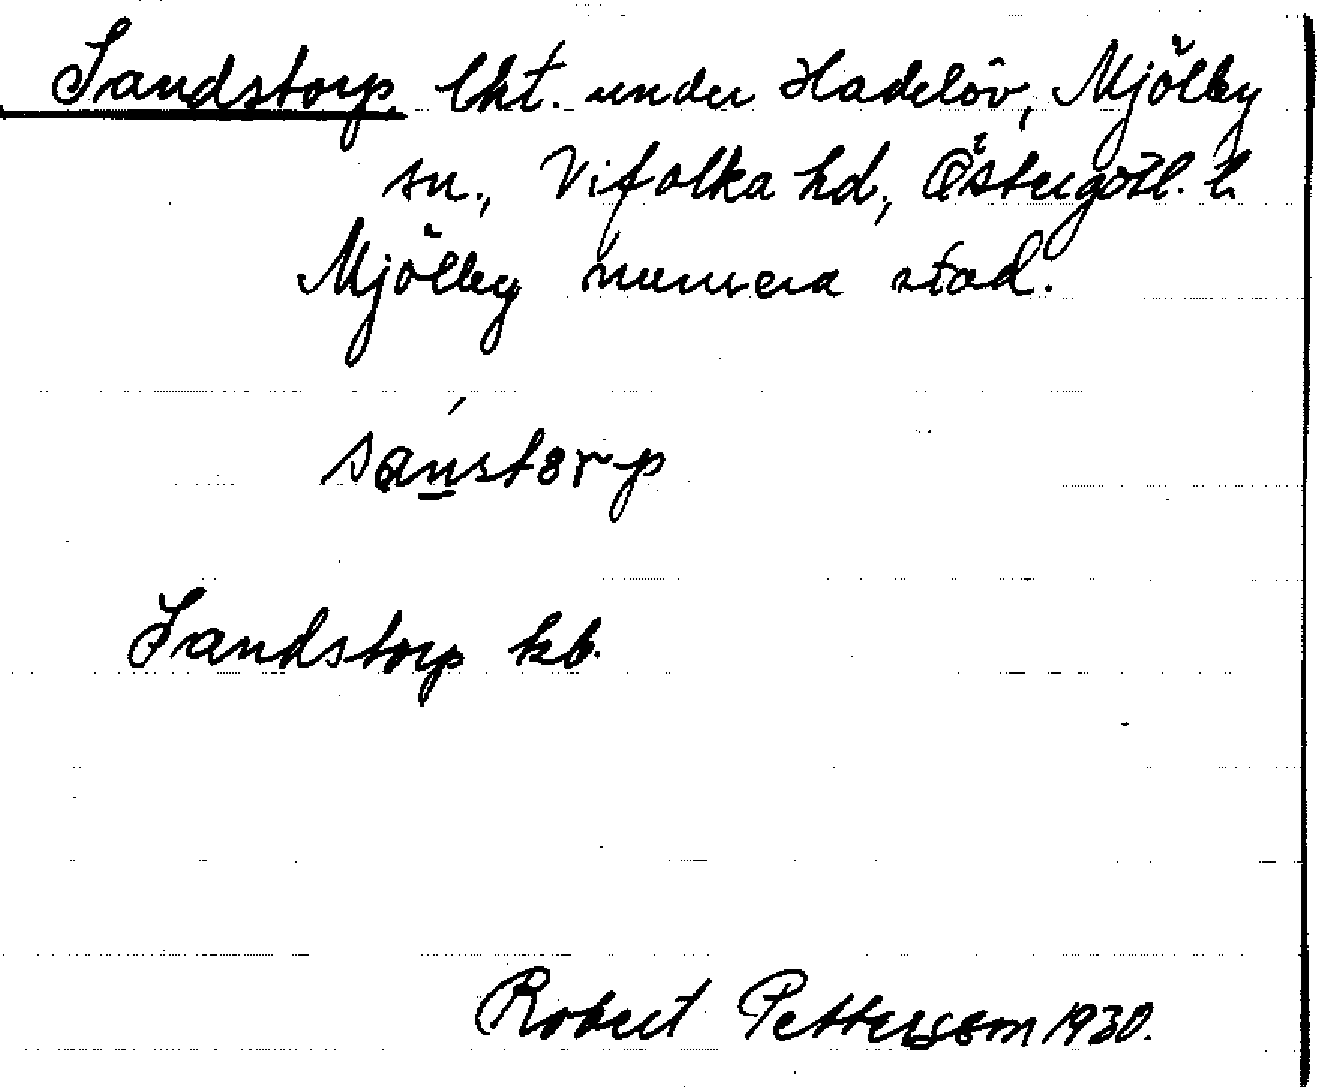 Sandstorp, lht. under Hadelöv, Mjölby
sn., Vifolka hd, Östergötl. l.
Mjölby numera stad.
sáns̲tɷrp
Sandstorp kb.
Robert Pettersson 1930.